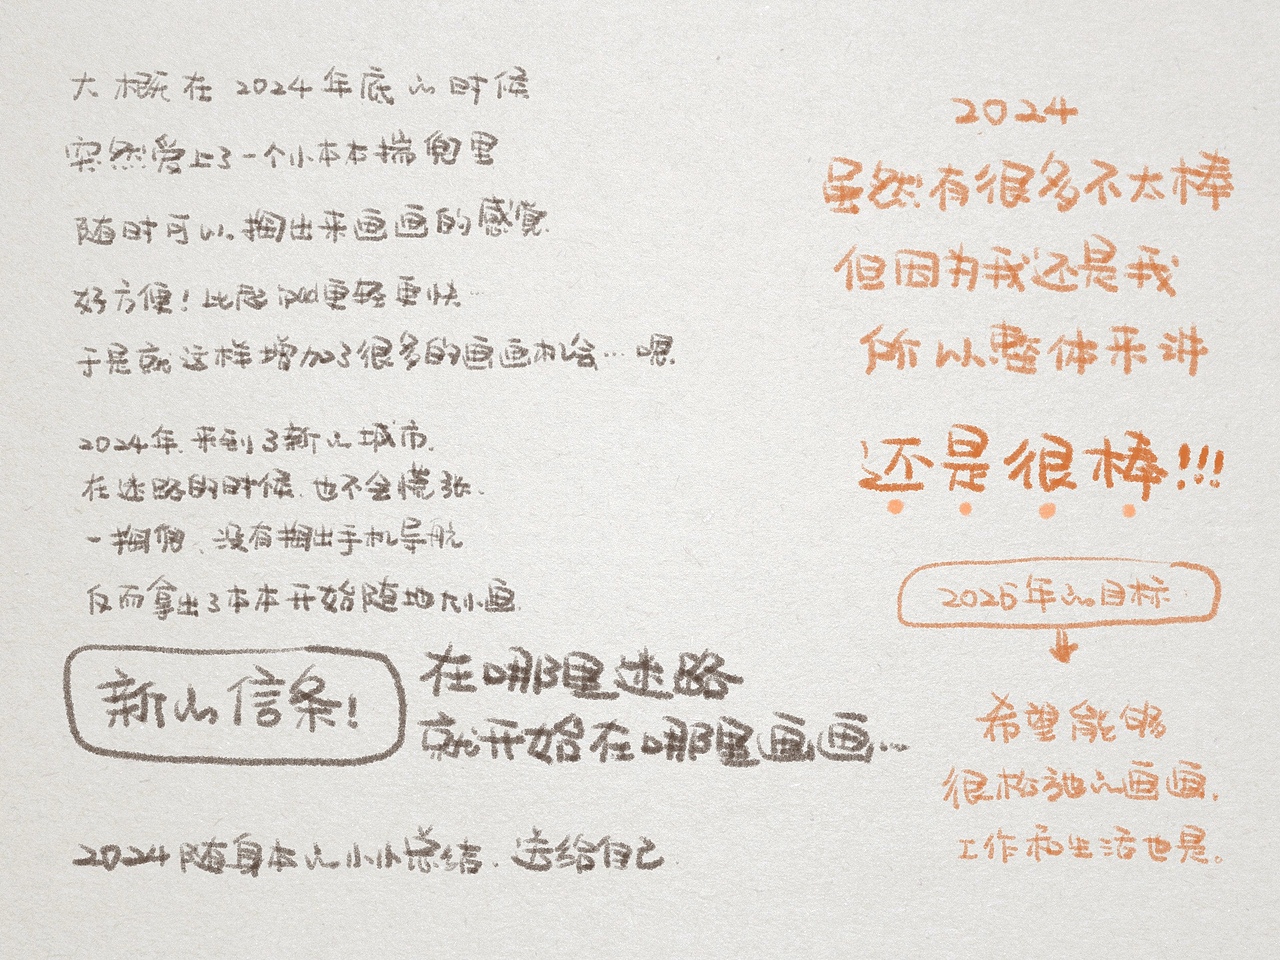 大概在2024年底的时候
突然爱上了一个小本本揣兜里
随时可以掏出来画画的感觉
好方便！比起ipad更轻更快…
于是就这样增加了很多的画画机会…嗯
2024年.来到了新的城市.
在迷路的时候.也不会慌张.
一掏兜、没有掏出手机导航
反而拿出了本本开始随地大小画.
新的信条！
在哪里迷路
就开始在哪里画画…
2024随身本的小小总结.送给自己
2024
虽然有很多不太棒
但因为我还是我
所以整体来讲
还是很棒!!!
2025年的目标
希望能够
很松弛的画画.
工作和生活也是。